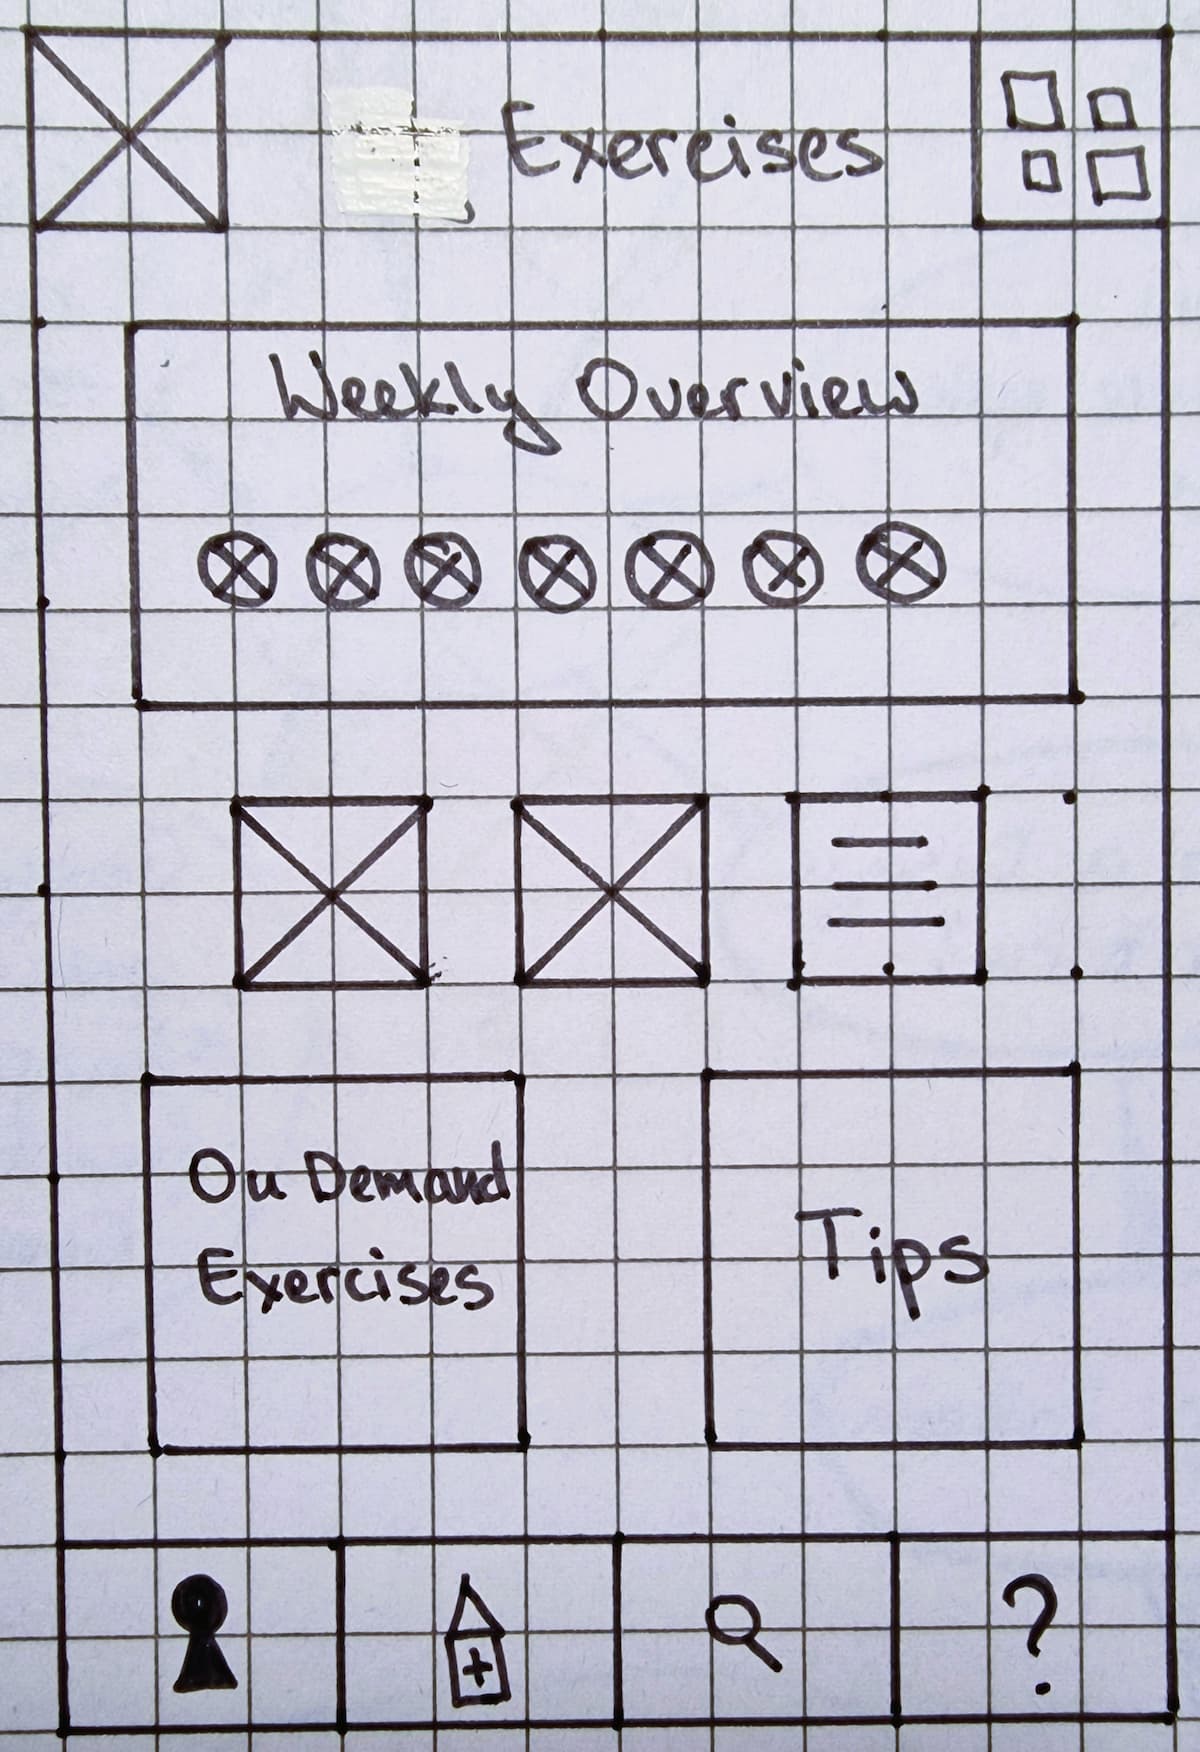 Exercises
Weekly Overview
On Demand
Exercises
Tips
?